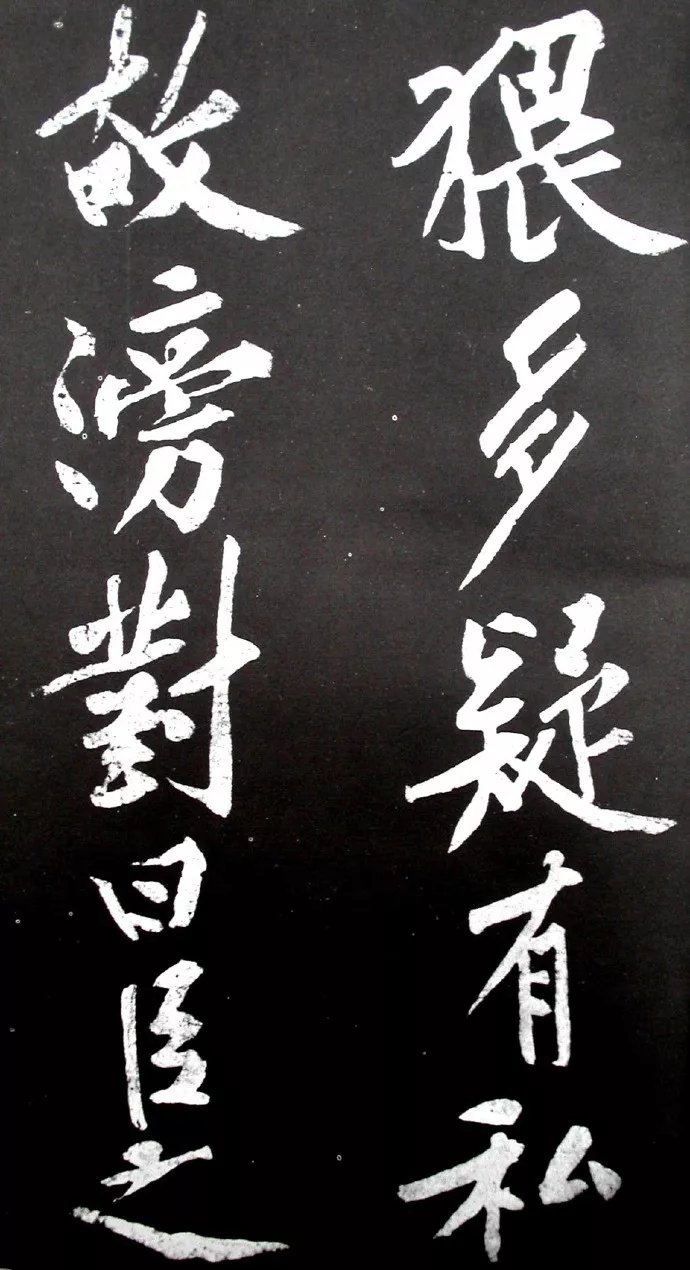 猥多疑有私
故滂對曰臣之